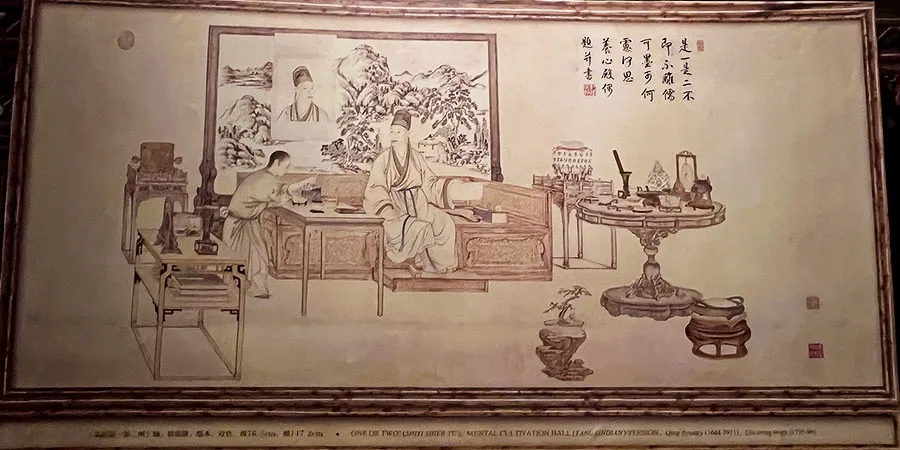 是一是二不
即不離儒
可墨可何
慮何思
養心殿偶
題并書
147.2cm • ONE OR TWO? (SHIYI SHIER TU), MENTAL CULTIVATION HALL (YANG XINDIAN) VERSION. Qing dynasty (1644-1911), Qianlong reign (1735-96)